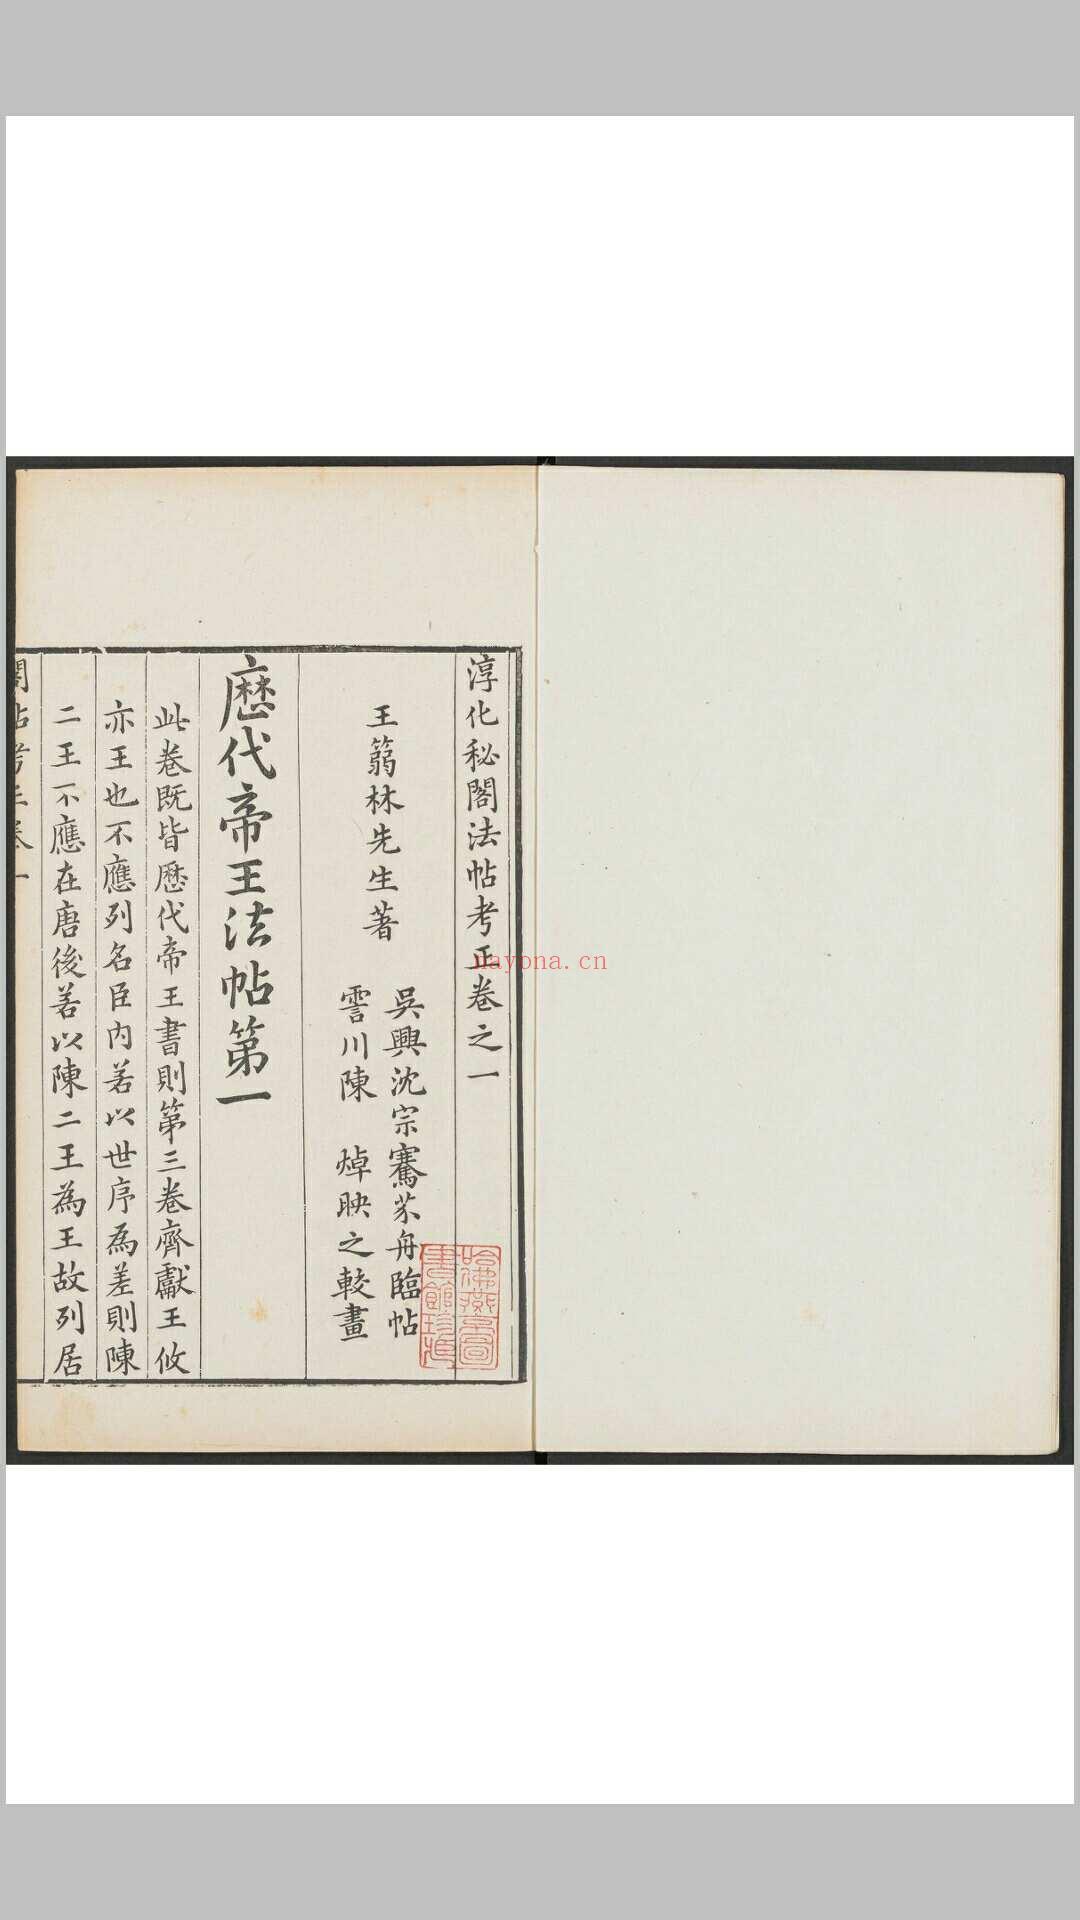 淳化秘閣法帖考正卷之一
王蒻林先生著
吳興沈宗騫芥舟臨帖
霅川陳 焯映之較畫
歷代帝王法帖第一
此卷既皆歷代帝王書則第三卷齊獻王攸
亦王也不應列名臣內若以世序為差則陳
二王不應在唐後若以陳二王為王故列居
閣帖考正卷一
哈佛燕京圖
書館珍藏
nayona.cn